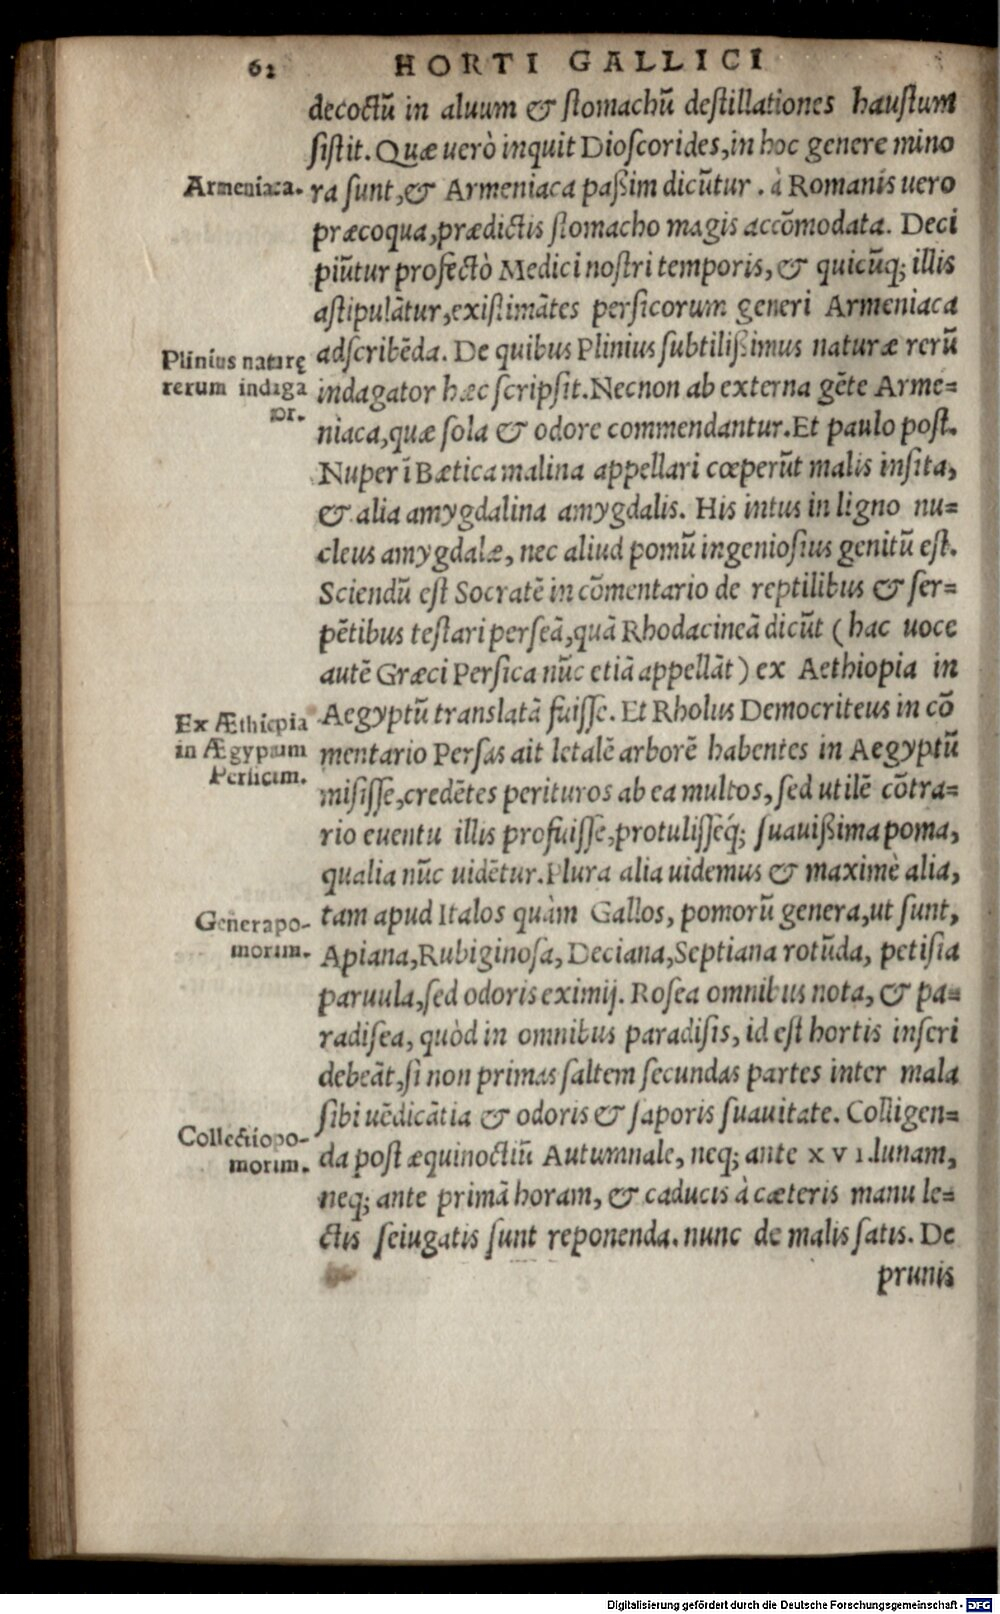 62 HORTI GALLICI
decoctū in aluum & ſtomachū deſtillationes hauſtum
ſiſtit. Quæ uerò inquit Dioſcorides, in hoc genere mino
Armeniaca.
ra ſunt, & Armeniaca paßim dicūtur . à Romanis uero
præcoqua, prædictis ſtomacho magis accōmodata. Deci
piūtur profectò Medici noſtri temporis, & quicūq; illis
aſtipulātur, exiſtimātes perſicorum generi Armeniaca
Plinius naturę
rerum indaga
tor.
adſcribēda. De quibus Plinius ſubtilißimus naturæ rerū
indagator hæc ſcripſit. Necnon ab externa gēte Arme=
niaca, quæ ſola & odore commendantur. Et paulo poſt.
Nuper ī Bætica malina appellari cœperūt malis inſita,
& alia amygdalina amygdalis. His intus in ligno nu=
cleus amygdalæ, nec aliud pomū ingenioſius genitū eſt.
Sciendū eſt Socratē in cōmentario de reptilibus & ſer=
pētibus teſtari perſeā, quā Rhodacineā dicūt ( hac uoce
autē Græci Perſica nūc etiā appellāt ) ex Aethiopia in
Ex Æthiopia
in Ægyptum
Persicum.
Aegyptū translatā fuiſſe. Et Rholus Democriteus in cō
mentario Perſas ait letalē arborē habentes in Aegyptū
miſiſſe, credētes perituros ab ea multos, ſed utilē cōtra=
rio euentu illis profuiſſe, protuliſſeq́; ſuauißima poma,
qualia nūc uidētur. Plura alia uidemus & maximè alia,
Genera po-
morum.
tam apud Italos quàm Gallos, pomorū genera, ut ſunt,
Apiana, Rubiginoſa, Deciana, Septiana rotūda, petiſia
paruula, ſed odoris eximij. Roſea omnibus nota, & pa=
radiſea, quòd in omnibus paradiſis, id eſt hortis inſeri
debeāt, ſi non primas ſaltem ſecundas partes inter mala
ſibi uēdicātia & odoris & ſaporis ſuauitate. Colligen=
Collectio po-
morum.
da poſt æquinoctiū Autumnale, neq; ante x v i. lunam,
neq; ante primā horam, & caducis à cæteris manu le=
ctis ſeiugatis ſunt reponenda. nunc de malis ſatis. De
prunis
Digitalisierung gefördert durch die Deutsche Forschungsgemeinschaft - DFG